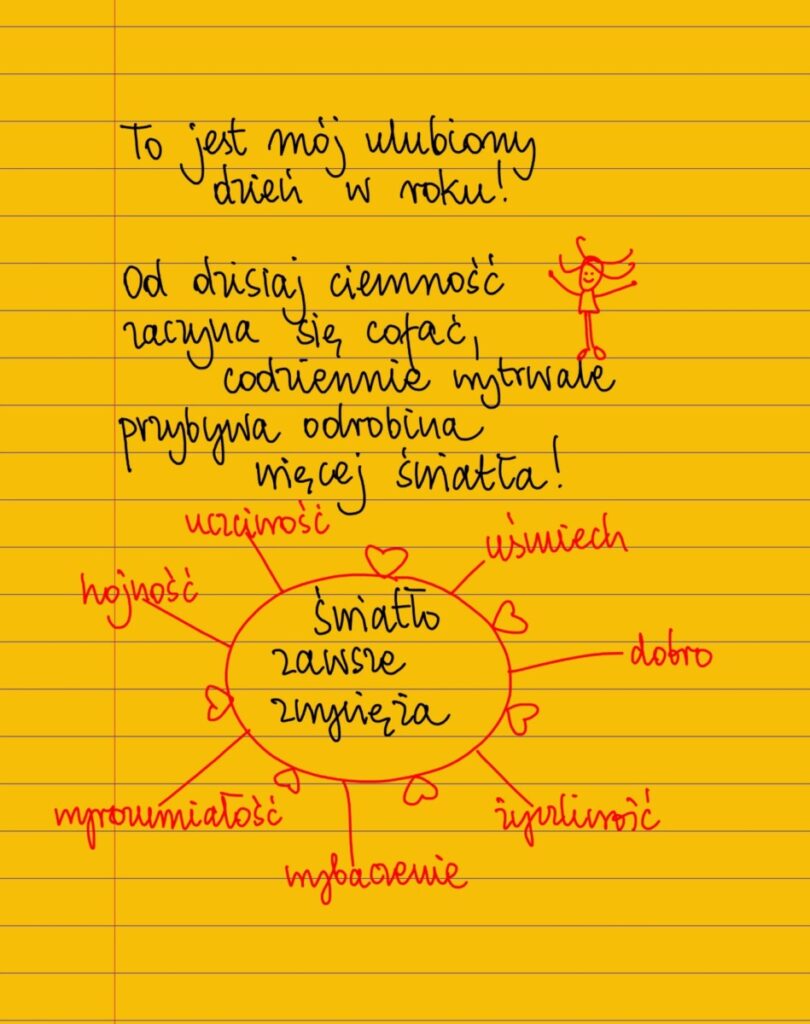 To jest mój ulubiony
dzień w roku!
Od dzisiaj ciemność
zaczyna się cofać,
codziennie wytrwale
przybywa odrobina
więcej światła!
uczciwość
uśmiech
hojność
światło
zawsze
zwycięża
dobro
wyrozumiałość
życzliwość
wybaczenie